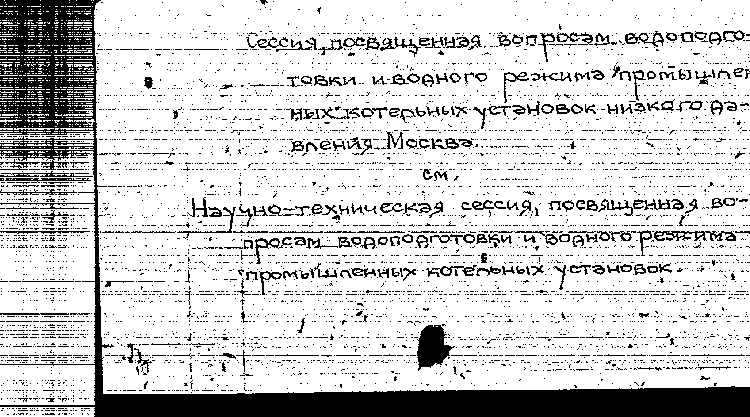 Сессия, посвященная вопросам водоподго-
товки и водного режима промышлен
ных котельных установок низкого да-
вления Москва.
см.
Научно-техническая сессия, посвященная во-
просам водоподготовки и водного режима
промышленных котельных установок.